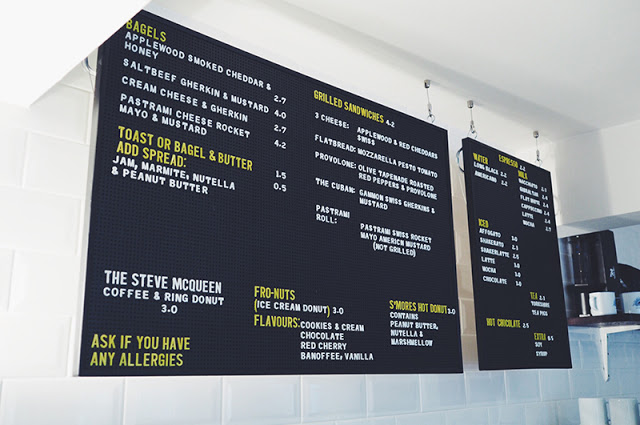 BAGELS
APPLEWOOD SMOKED CHEDDAR &
HONEY 2.7
SALTBEEF GHERKIN & MUSTARD 4.0
CREAM CHEESE & GHERKIN 2.7
PASTRAMI CHEESE ROCKET
MAYO & MUSTARD 4.2
TOAST OR BAGEL & BUTTER 1.5
ADD SPREAD: 0.5
JAM, MARMITE, NUTELLA
& PEANUT BUTTER
THE STEVE MCQUEEN
COFFEE & RING DONUT
3.0
ASK IF YOU HAVE
ANY ALLERGIES
GRILLED SANDWICHES 4.2
3 CHEESE: APPLEWOOD & RED CHEDDARS
SWISS
FLATBREAD: MOZZARELLA PESTO TOMATO
PROVOLONE: OLIVE TAPENADE ROASTED
RED PEPPERS & PROVOLONE
THE CUBAN: GAMMON SWISS GHERKINS &
MUSTARD
PASTRAMI
ROLL: PASTRAMI SWISS ROCKET
MAYO AMERICN MUSTARD
(NOT GRILLED)
FRO-NUTS
(ICE CREAM DONUT) 3.0
FLAVOURS: COOKIES & CREAM
CHOCOLATE
RED CHERRY
BANOFFEE, VANILLA
S'MORES HOT DONUT 3.0
CONTAINS
PEANUT BUTTER,
NUTELLA &
MARSHMELLOW
WATER
LONG BLACK 2.2
AMERICANO 2.2
ESPRESSO
MILK
MACCHIATO
FLAT WHITE
CAPPUCCINO
LATTE
MOCHA
ICED
AFFOGATO 3.0
SHAKERATO
SHAKERLATTE
LATTE
MOCHA
CHOCOLATE 3.0
TEA
YORKSHIRE
TEA PIGS
HOT CHOCOLATE 2.5
EXTRA 0.5
SOY
SYRUP